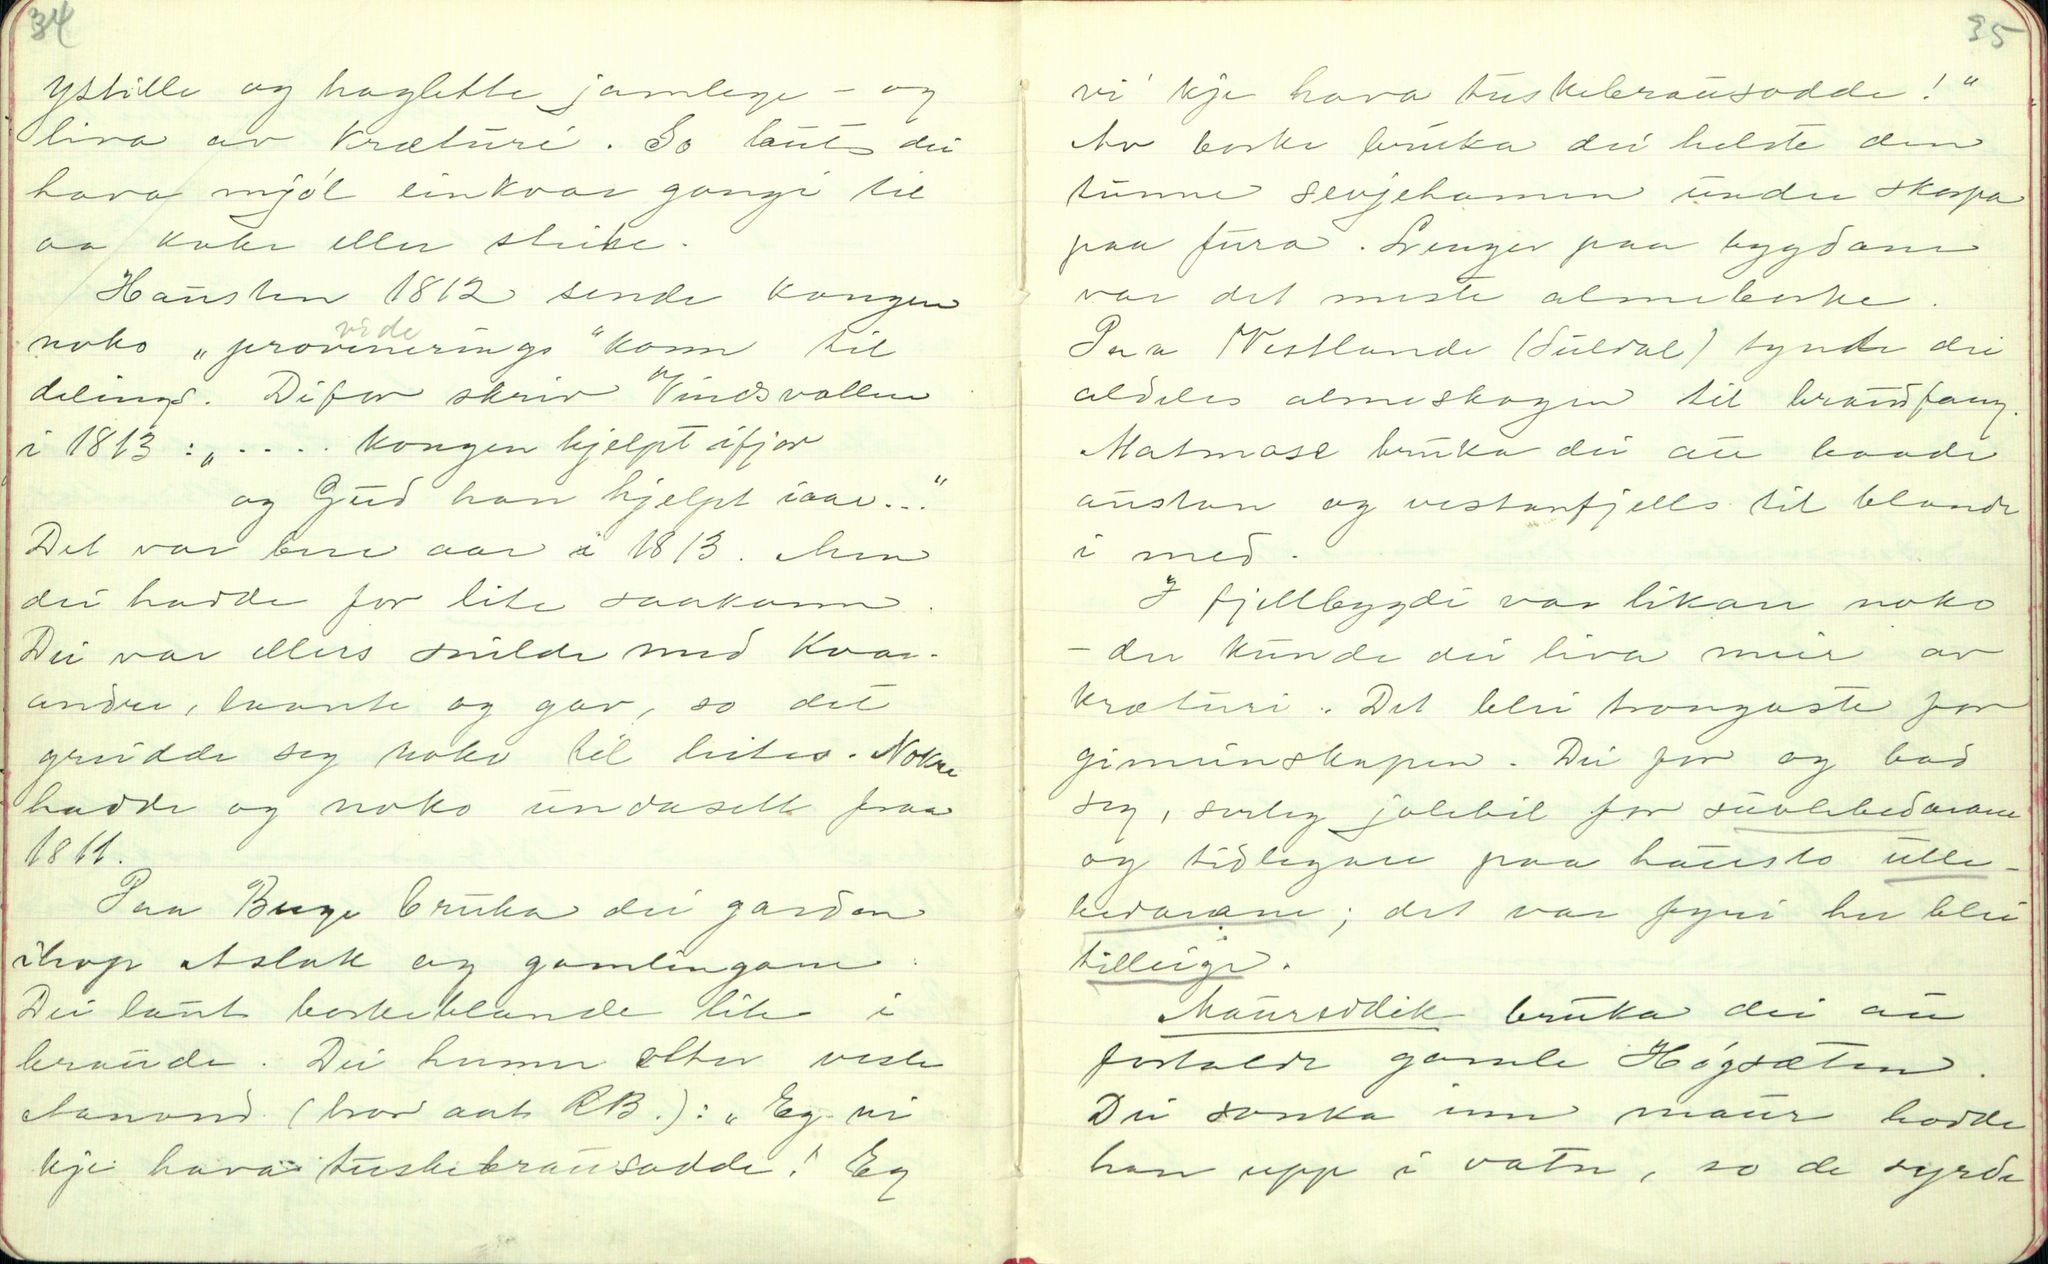 34
ystille og hoglette jamlege - og
liva av kræturi. So laut dei
hava mjøl einkvar gongi til
aa koke eller steike.
Hausten 1812 sende kongen
noko „provianerings" konn til
vide
delings. Difor skriv Vindsvollen
i 1813: „.... kongen hjelpt ifjor
og Gud han hjelpt iaar..."
Det var bere aar i 1813. Men
dei hadde for lite saakonn.
Dei var ellers snilde med kvar-
andre, laante og gav, so det
greidde seg noko til leites. Nokre
hadde og noko undasett fraa
1811.
Paa Buge bruka dei garden
ihop Aslak og gamlingane.
Dei laut borkeblande lite i
braude. Dei humr etter vesle
Aanond (bror aat RB.): „Eg vi
kje hava tuskebrausodde! Eg
35
vi kje hava tuskebrausodde!"
Av borke bruka dei helste den
tunne sevjehamen under skorpa
paa fura. Lenger paa bygdane
var det meste almeborke.
Paa Vestlande (Suldal) tynte dei
aldeles almeskogen til braudfang.
Matmose bruka dei au baade
austan og vestanfjells til blande
i med.
I fjellbygdi var likare noko
- der kunde dei liva meir av
kræturi. Det blei trongaste for
gimeinskapen. Dei for og bad
seg, serleg jolebil for suvlebedarane
og tidlegare paa hausto ulle-
bedarane; det var fyri her blei
tilleigje.
Maureddik bruka dei au
fortalde gamle Høgsæten.
Dei sanka inn maur hadde
han upp i vatn, so de syrde